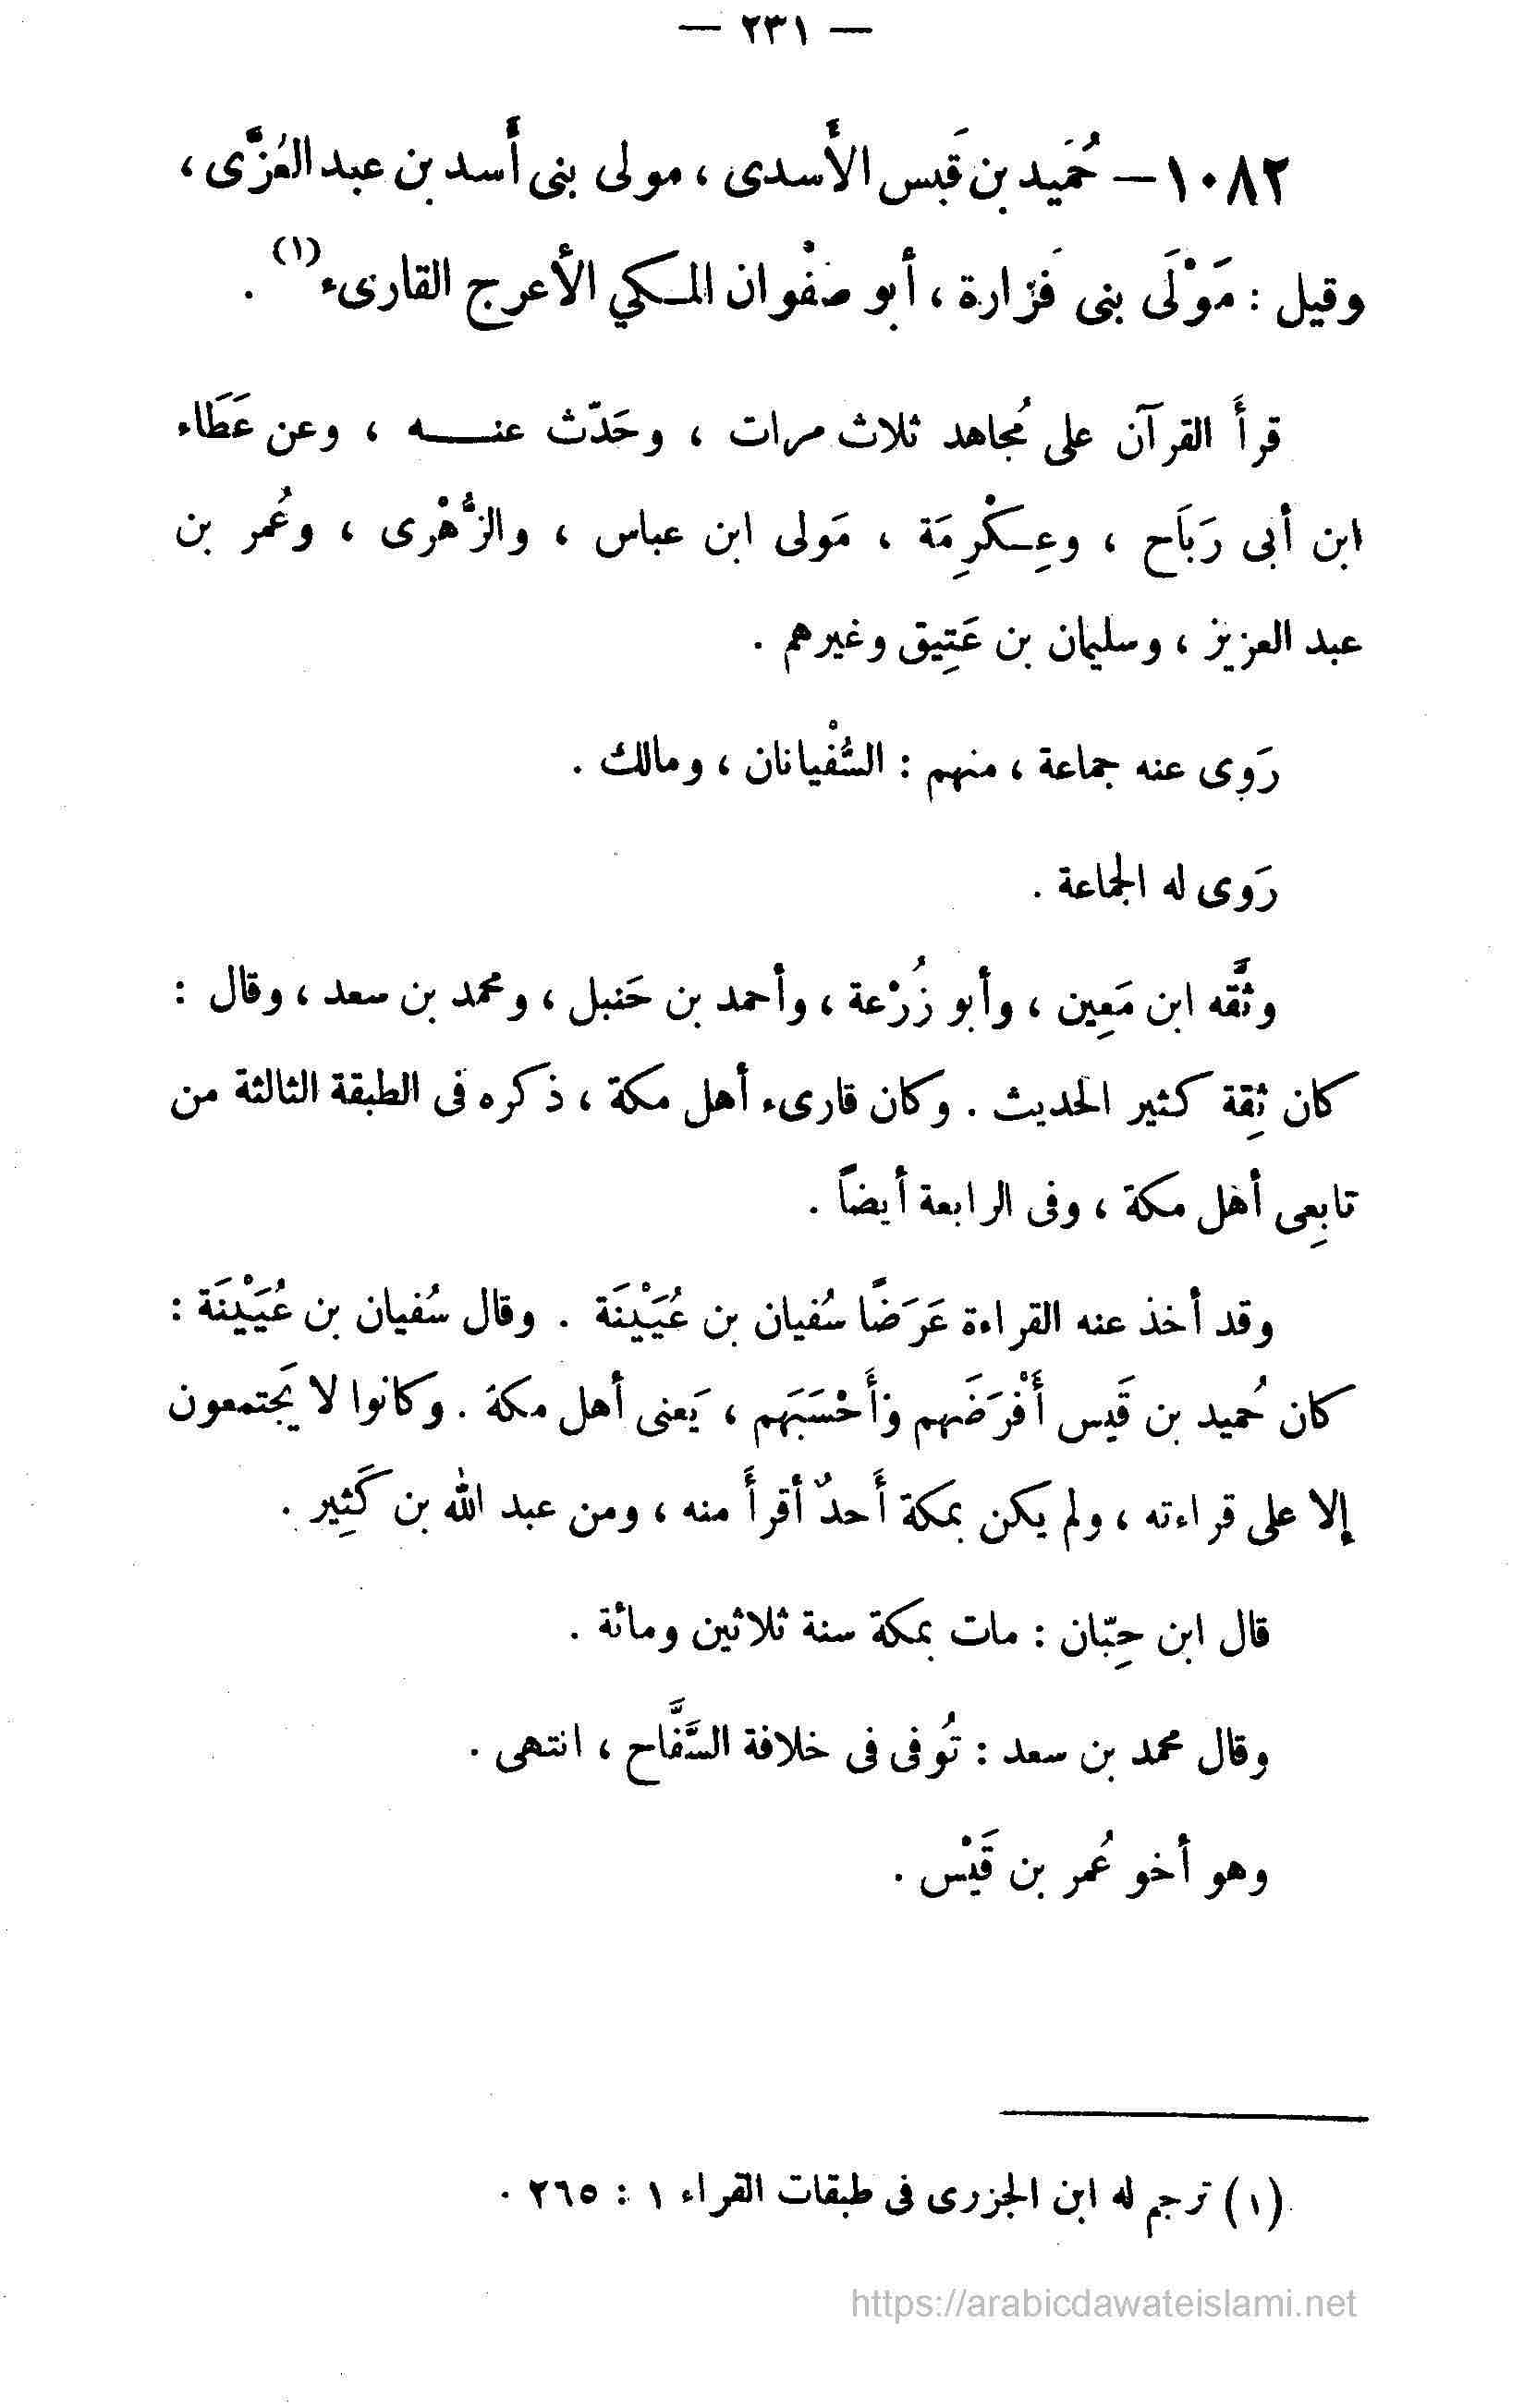 — ٢٣١ —
١٠٨٢ – حُمَيد بن قَيس الأَسدى ، مولى بنى أَسد بن عبد العُزَّى ،
وقيل : مَوْلَى بنى فَزارة ، أبو صَفْوان المكي الأعرج القارىء(١) .
قرأَ القرآن على مُجاهد ثلاث مرات ، وحَدّث عنه ، وعن عَطَاء
ابن أبى رَبَاح ، وعِكْرِمَة ، مَولى ابن عباس ، والزُّهْرى ، وعُمر بن
عبد العزيز ، وسليمان بن عَتِيق وغيرهم .
رَوى عنه جماعة ، منهم : السُّفْيانان ، ومالك .
رَوى له الجماعة .
وثَّقه ابن مَعِين ، وأبو زُرْعة ، وأحمد بن حَنبل ، ومحمد بن سعد ، وقال :
كان ثِقة كثير الحديث . وكان قارىء أهل مكة ، ذكره فى الطبقة الثالثة من
تابِعى أهل مكة ، وفى الرابعة أيضاً .
وقد أخذ عنه القراءة عَرَضًا سُفيان بن عُيَيْنَة . وقال سُفيان بن عُيَيْنَة :
كان حُميد بن قَيس أَفْرَضَهم وَأَحْسَبَهم ، يَعنى أهل مكة . وكانوا لا يَجتمعون
إلا على قراءته ، ولم يكن بمكة أَحدٌ أقرأَ منه ، ومن عبد الله بن كَثِير .
قال ابن حِبّان : مات بمكة سنة ثلاثين ومائة .
وقال محمد بن سعد : تُوفى فى خلافة السَّفَّاح ، انتهى .
وهو أخو عُمر بن قَيْس .
(١) ترجم له ابن الجزرى فى طبقات القراء ١ : ٢٦٥ .
https://arabicdawateislami.net